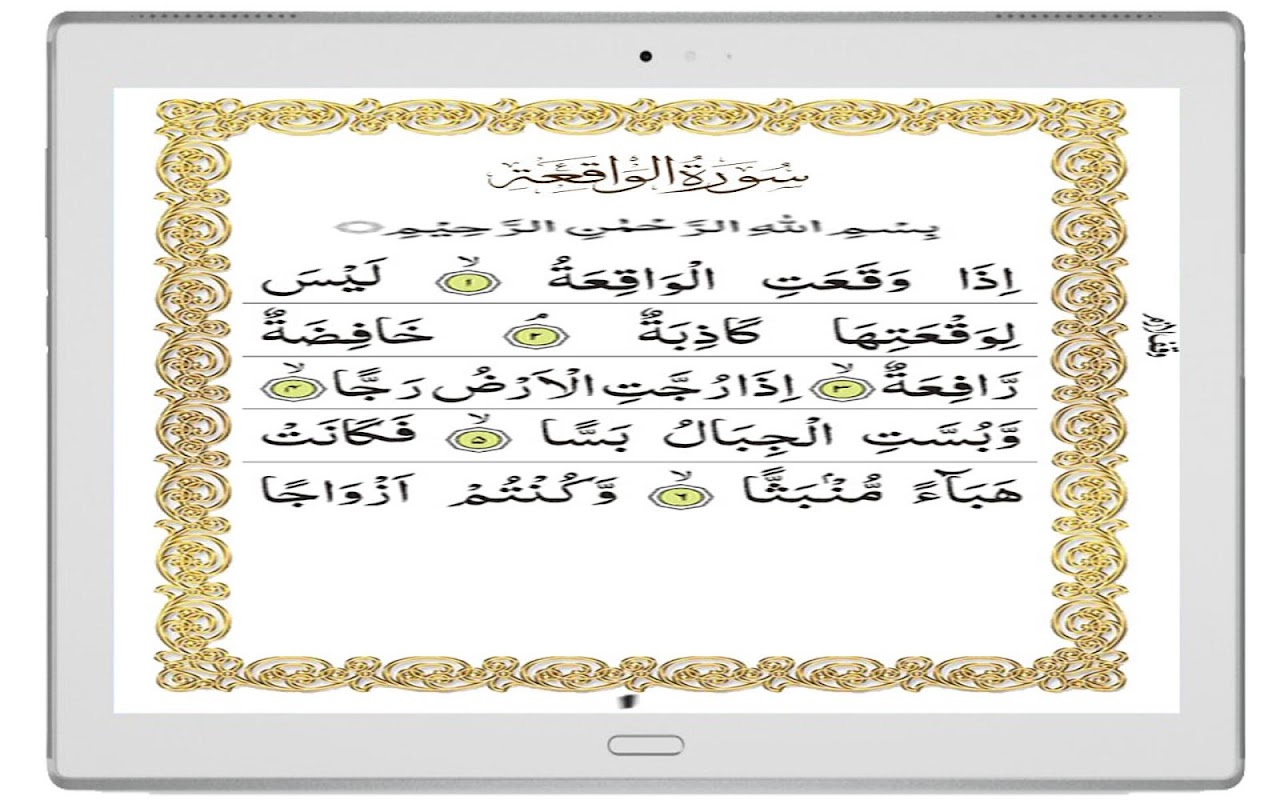 سُوْرَةُ الْوَاقِعَةِ
بِسْمِ اللهِ الرَّحْمٰنِ الرَّحِيْمِ
اِذَا وَقَعَتِ الْوَاقِعَةُ ۙ‏ ۱ لَيْسَ
لِوَقْعَتِهَا كَاذِبَةٌ ۘ‏ ۲ خَافِضَةٌ
رَّافِعَةٌ ۙ‏ ۳ اِذَا رُجَّتِ الْاَرْضُ رَجًّا ۙ‏ ۴
وَّبُسَّتِ الْجِبَالُ بَسًّا ۙ‏ ۵ فَكَانَتْ
هَبَآءً مُّنْۢبَثًّا ۙ‏ ۶ وَّكُنْتُمْ اَزْوَاجًا
وقف لازم
۱